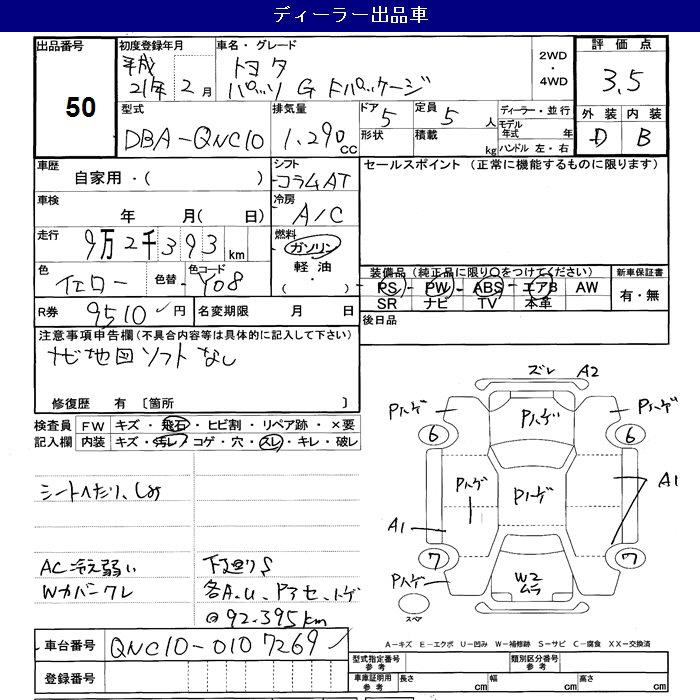 ディーラー出品車
出品番号 50
初度登録年月 平成21年2月
車名・グレード トヨタ パッソ G Fパッケージ
2WD・4WD
評価点 3.5
型式 DBA-QNC10
排気量 1,290cc
ドア 5 形状
定員 5人 積載 kg
ディーラー・並行
モデル年式 年
ハンドル 左・右
外装 D 内装 B
車歴 自家用・( )
シフト コラムAT
セールスポイント (正常に機能するものに限ります)
車検 年 月( 日)
冷房 A/C
走行 9万2千393km
燃料 ガソリン 軽油・( )
色 イエロー 色替 色コード Y08
装備品 (純正品に限り○をつけてください)
PS PW ABS エアB AW
SR ナビ TV 本革
新車保証書 有・無
R券 9510円
名変期限 月 日
後日品
注意事項申告欄 (不具合内容等は具体的に記入して下さい)
ナビ地図ソフトなし
修復歴 有 〔箇所 〕
検査員記入欄
FW キズ・飛石・ヒビ割・リペア跡・×要
内装 キズ・汚レ・コゲ・穴・スレ・キレ・破レ
シートへたり、しみ
AC冷え弱い
Wカバークレ
下廻りS
各A.U、Pアセ、トゲ
@92.395km
ズレ A2
Pハゲ Pハゲ Pハゲ
6 6
Pハゲ Pハゲ A1
A1
7 7
Pハゲ W2 ムラ
スペア
車台番号 QNC10-0107269
登録番号
A-キズ E-エクボ U-凹み W-補修跡 S-サビ C-腐食 XX-交換済
型式指定番号 参考 類別区分番号 参考
車庫証明用 参考 長さ cm 幅 cm 高さ cm